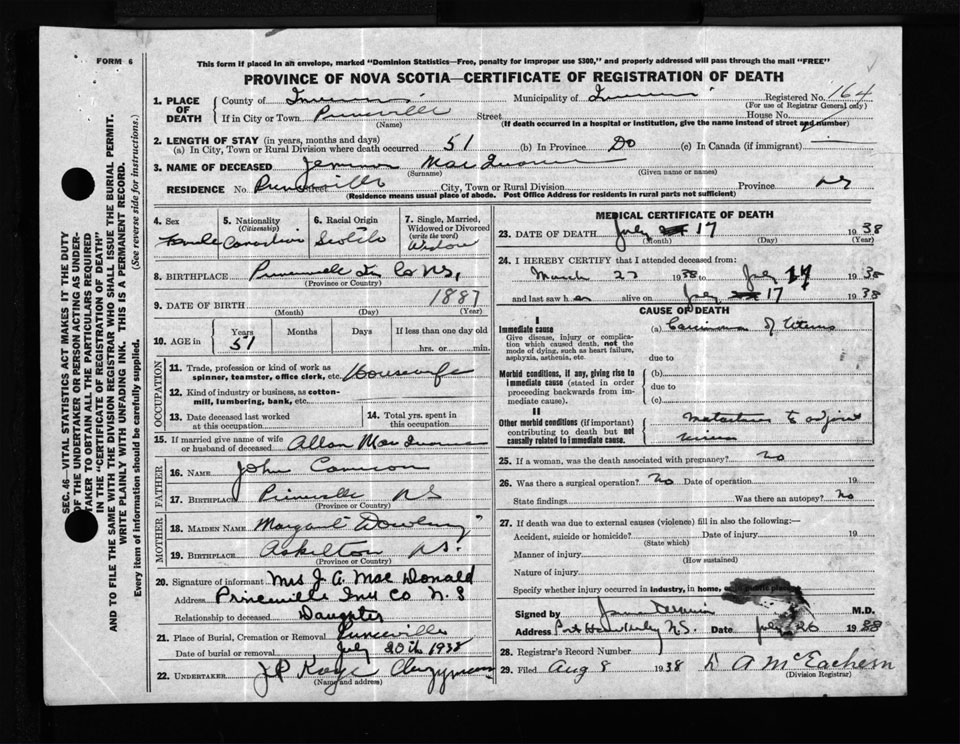 FORM 6
This form if placed in an envelope, marked "Dominion Statistics—Free, penalty for improper use $300," and properly addressed will pass through the mail "FREE"
PROVINCE OF NOVA SCOTIA—CERTIFICATE OF REGISTRATION OF DEATH
SEC. 46—VITAL STATISTICS ACT MAKES IT THE DUTY
OF THE UNDERTAKER OR PERSON ACTING AS UNDER-
TAKER TO OBTAIN ALL THE PARTICULARS REQUIRED
IN THE "CERTIFICATE OF REGISTRATION OF DEATH"
AND TO FILE THE SAME WITH THE DIVISION REGISTRAR WHO SHALL ISSUE THE BURIAL PERMIT.
WRITE PLAINLY WITH UNFADING INK. THIS IS A PERMANENT RECORD.
Every item of information should be carefully supplied. (See reverse side for instructions.)
1. PLACE OF DEATH
County of Municipality of Registered No. 164
(For use of Registrar General only)
If in City or Town Princeville Street House No.
(Name) (If death occurred in a hospital or institution, give the name instead of street and number)
2. LENGTH OF STAY (in years, months and days)
(a) In City, Town or Rural Division where death occurred 51 (b) In Province Do (c) In Canada (if immigrant)
3. NAME OF DECEASED
(Surname) (Given name or names)
RESIDENCE No. Princeville Street City, Town or Rural Division Province NS
(Residence means usual place of abode. Post Office Address for residents in rural parts not sufficient)
4. Sex Female
5. Nationality (Citizenship) Canadian
6. Racial Origin Scotch
7. Single, Married, Widowed or Divorced (write the word) Widow
8. BIRTHPLACE Princeville In Co NS,
(Province or Country)
9. DATE OF BIRTH 1887
(Month) (Day) (Year)
10. AGE in Years 51 Months Days If less than one day old
hrs. or min.
OCCUPATION
11. Trade, profession or kind of work as spinner, teamster, office clerk, etc. Housewife
12. Kind of industry or business, as cotton-mill, lumbering, bank, etc.
13. Date deceased last worked at this occupation
14. Total yrs. spent in this occupation
15. If married give name of wife or husband of deceased Allan
FATHER
16. NAME John Cameron
17. BIRTHPLACE Princeville NS
(Province or Country)
MOTHER
18. MAIDEN NAME Margaret Dowling
19. BIRTHPLACE Askilton N.S.
(Province or Country)
20. Signature of informant Mrs J. A. Mac Donald
Address Princeville Inv Co N. S
Relationship to deceased Daughter
21. Place of Burial, Cremation or Removal Princeville
Date of burial or removal July 20th 1938
22. UNDERTAKER J P Clergyman
(Name and address)
MEDICAL CERTIFICATE OF DEATH
23. DATE OF DEATH July 17 1938
(Month) (Day) (Year)
24. I HEREBY CERTIFY that I attended deceased from:
March 27 1938 to July 17 1938
and last saw her alive on July 17 1938
CAUSE OF DEATH
I
Immediate cause (a) Carcinoma of Uterus
Give disease, injury or complica-
tion which caused death, not the
mode of dying, such as heart failure,
asphyxia, asthenia, etc.
due to
Morbid conditions, if any, giving rise to
immediate cause (stated in order
proceeding backwards from im-
mediate cause).
(b)
due to
(c)
II
Other morbid conditions (if important)
contributing to death but not
causally related to immediate cause.
to
25. If a woman, was the death associated with pregnancy? No
26. Was there a surgical operation? No Date of operation 19
State findings Was there an autopsy? No
27. If death was due to external causes (violence) fill in also the following:—
Accident, suicide or homicide? Date of injury 19
(State which)
Manner of injury
(How sustained)
Nature of injury
Specify whether injury occurred in industry, in home, or in public place
Signed by M.D.
Address Port Hawkesbury N.S. Date July 26 1938
28. Registrar's Record Number
29. Filed Aug 8 1938 D A McEachern
(Division Registrar)